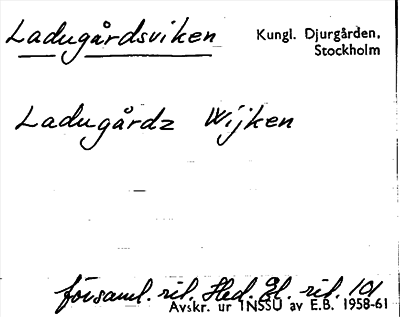 Ladugårdsviken
Kungl. Djurgården,
Stockholm
Ladugårdz Wijken
församl. rit. Hed. El. rit. 101
Avskr. ur INSSU av E.B. 1958-61